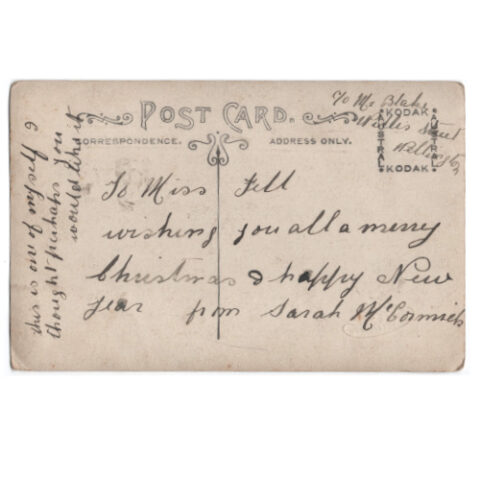 c/o Mr Blake
Willis Street
Wellington
POST CARD.
CORRESPONDENCE.
ADDRESS ONLY.
KODAK
AUSTRAL
AUSTRAL
KODAK
To Miss Fell
wishing you all a merry
Christmas & happy New
Year from Sarah McCormick
this is one of myself &
thought perhaps you
would like it